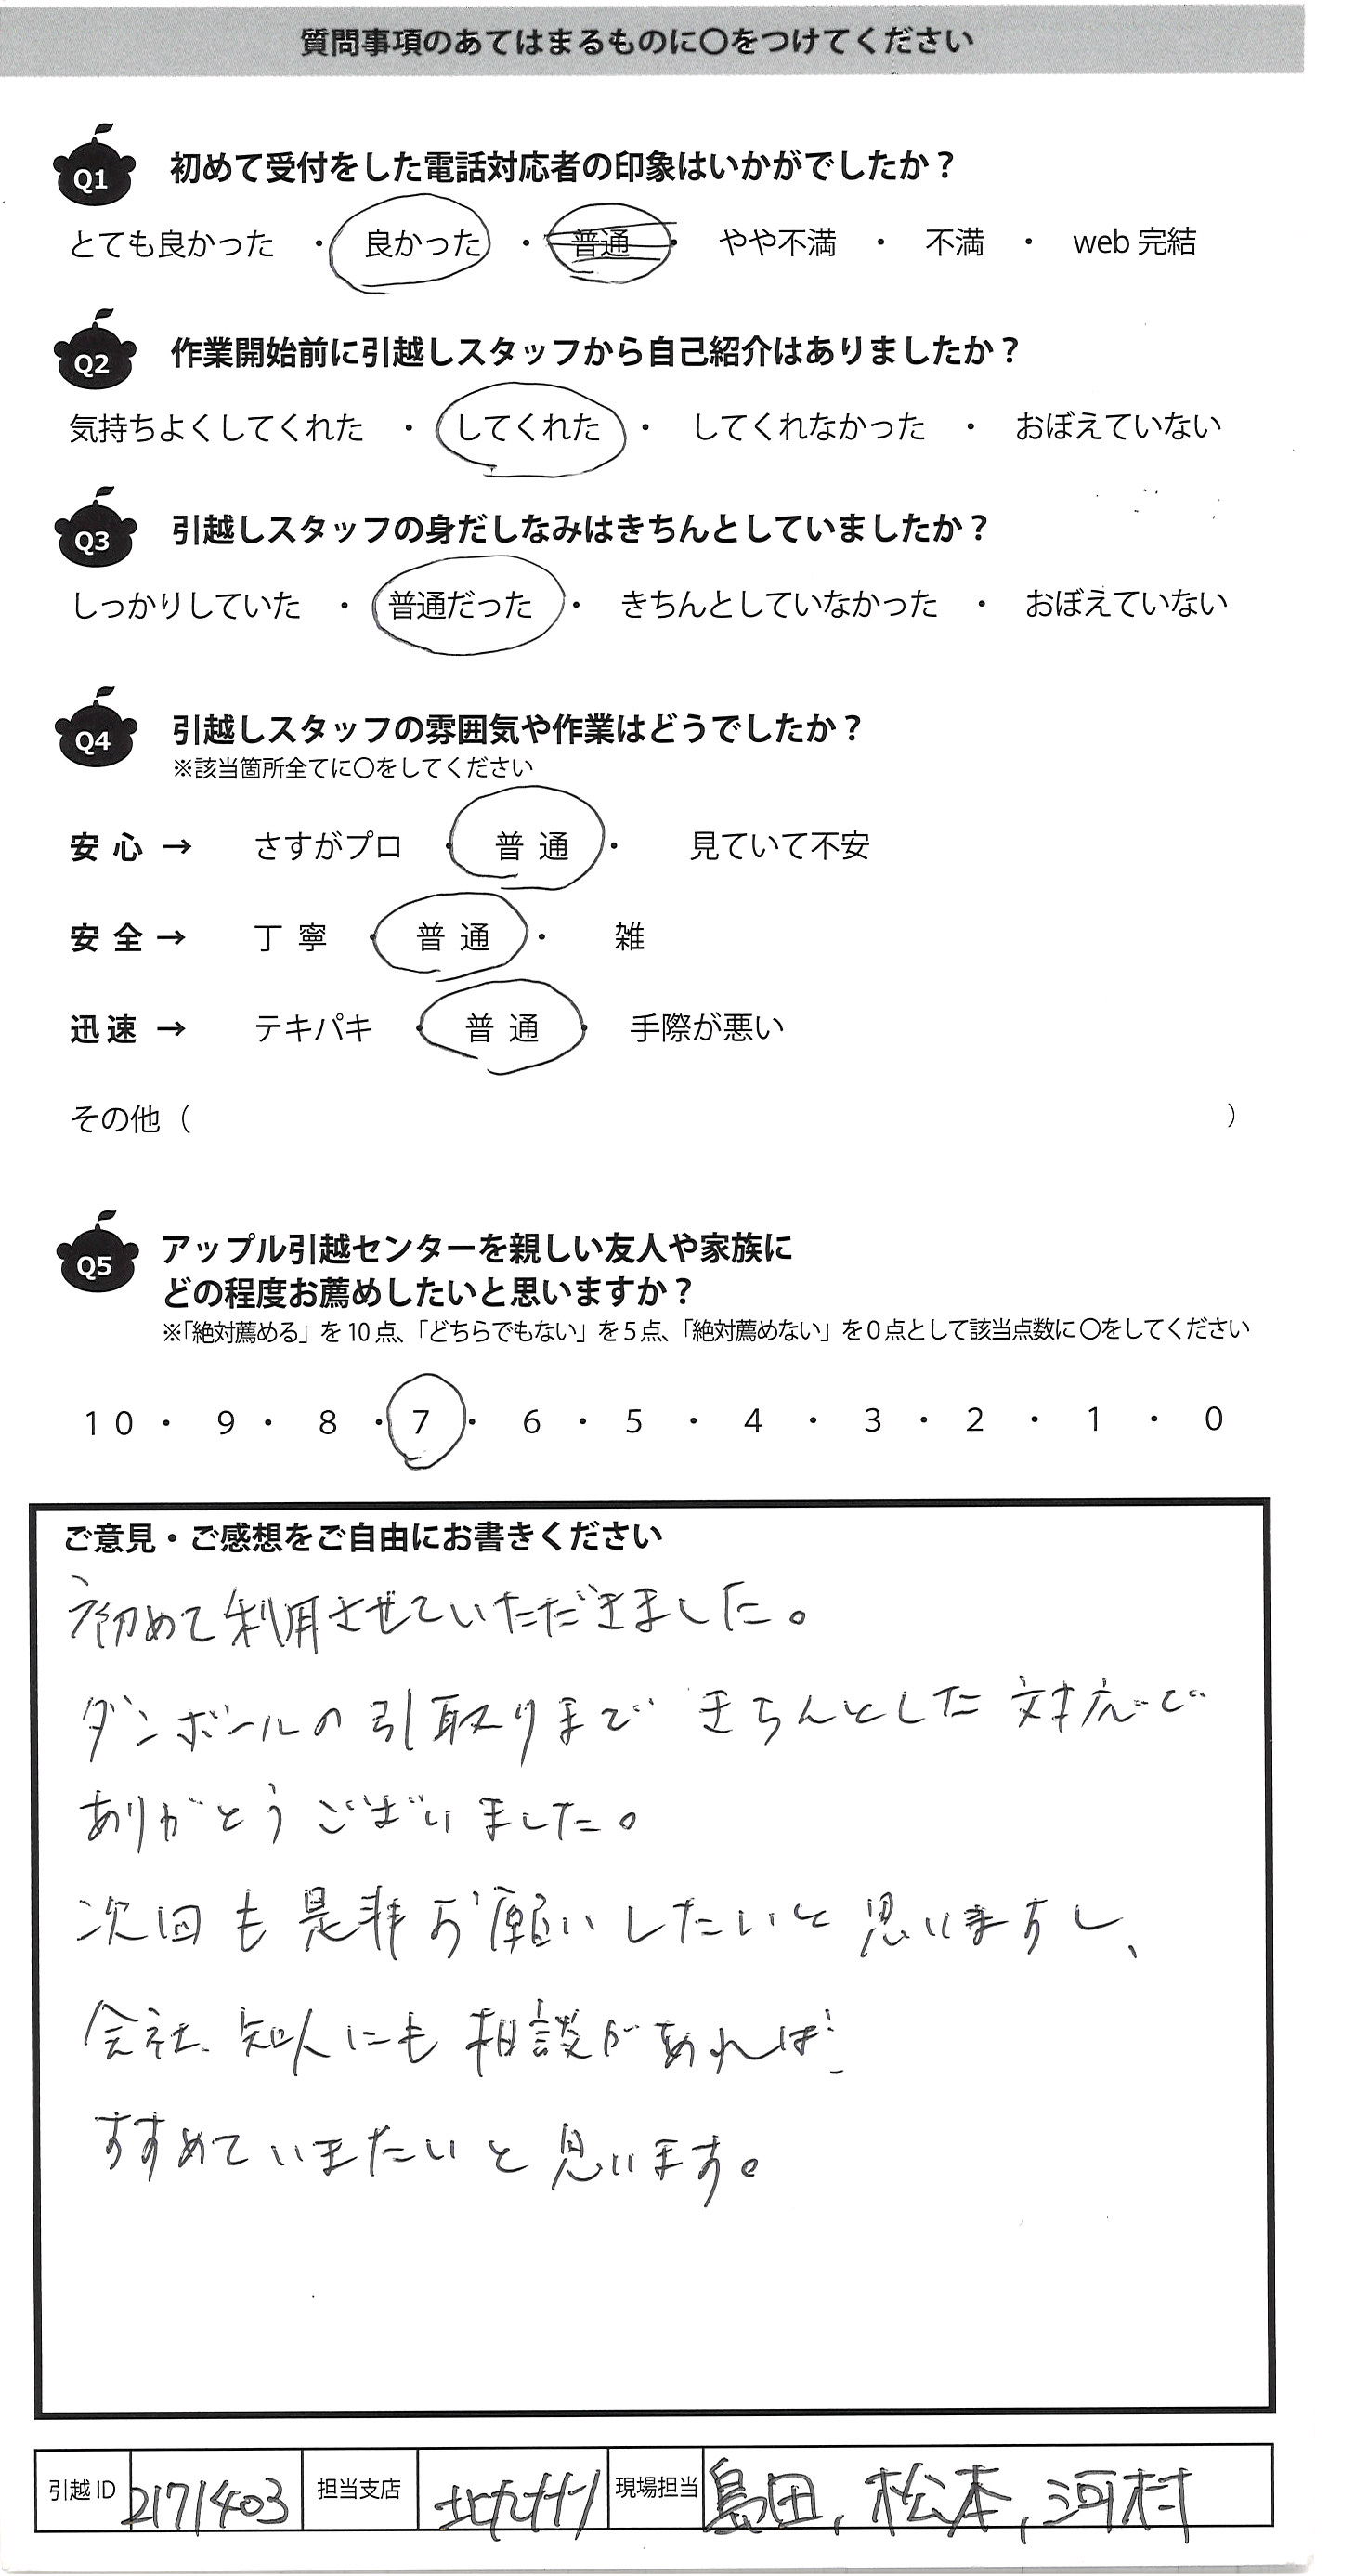 質問事項のあてはまるものに〇をつけてください
Q1 初めて受付をした電話対応者の印象はいかがでしたか？
とても良かった ・ 良かった ・ 普通 ・ やや不満 ・ 不満 ・ web 完結
Q2 作業開始前に引越しスタッフから自己紹介はありましたか？
気持ちよくしてくれた ・ してくれた ・ してくれなかった ・ おぼえていない
Q3 引越しスタッフの身だしなみはきちんとしていましたか？
しっかりしていた ・ 普通だった ・ きちんとしていなかった ・ おぼえていない
Q4 引越しスタッフの雰囲気や作業はどうでしたか？
※該当箇所全てに〇をしてください
安心 → さすがプロ ・ 普通 ・ 見ていて不安
安全 → 丁寧 ・ 普通 ・ 雑
迅速 → テキパキ ・ 普通 ・ 手際が悪い
その他（ ）
Q5 アップル引越センターを親しい友人や家族に
どの程度お薦めしたいと思いますか？
※「絶対薦める」を10点、「どちらでもない」を5点、「絶対薦めない」を0点として該当点数に〇をしてください
10 ・ 9 ・ 8 ・ 7 ・ 6 ・ 5 ・ 4 ・ 3 ・ 2 ・ 1 ・ 0
ご意見・ご感想をご自由にお書きください
初めて利用させていただきました。
ダンボールの引取りまで きちんとした対応で
ありがとうございました。
次回も是非お願いしたいと思いますし、
会社、知人にも相談があれば
すすめていきたいと思います。
引越ID 2171403 担当支店 北九州 現場担当 島田, 松本, 河村